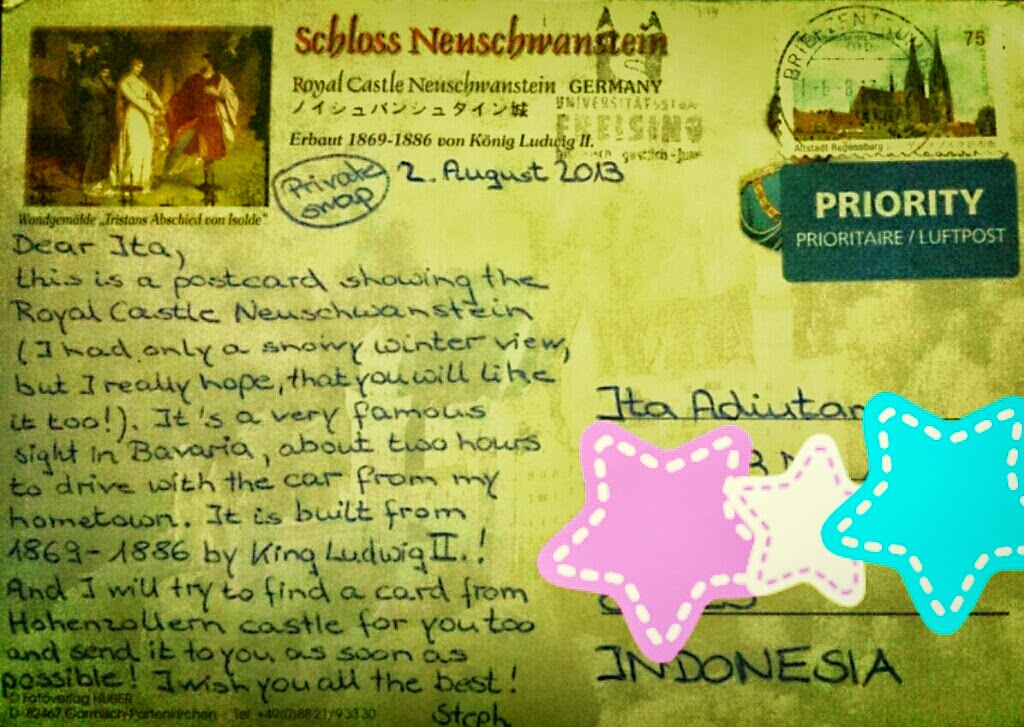 Schloss Neuschwanstein
Royal Castle Neuschwanstein GERMANY
ノイシュバンシュタイン城
Erbaut 1869-1886 von König Ludwig II.
Wandgemälde „Tristans Abschied von Isolde"
Private
swap
2. August 2013
BRIEFZENTRUM
75
Altstadt Regensburg
PRIORITY
PRIORITAIRE / LUFTPOST
Dear Ita,
this is a postcard showing the
Royal Castle Neuschwanstein
(I had only a snowy winter view,
but I really hope, that you will like
it too!). It's a very famous
sight in Bavaria, about two hours
to drive with the car from my
hometown. It is built from
1869-1886 by King Ludwig II.!
And I will try to find a card from
Hohenzollern castle for you too
and send it to you as soon as
possible! I wish you all the best!
Steph
© Fotoverlag HUBER
D-82467 Garmisch-Partenkirchen · Tel. +49(0)8821/93330
Ita
INDONESIA